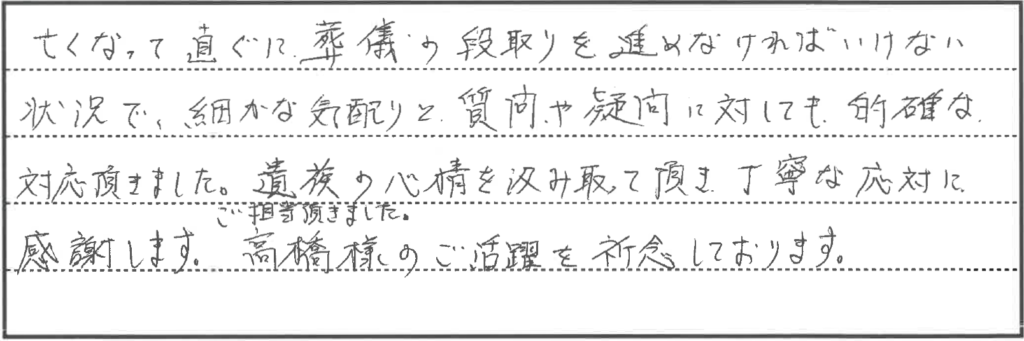 亡くなって直ぐに葬儀の段取りを進めなければいけない
状況で、細かな気配りと質問や疑問に対しても的確な
対応頂きました。遺族の心情を汲み取って頂き丁寧な応対に
ご担当頂きました。
感謝します。高橋様のご活躍を祈念しております。